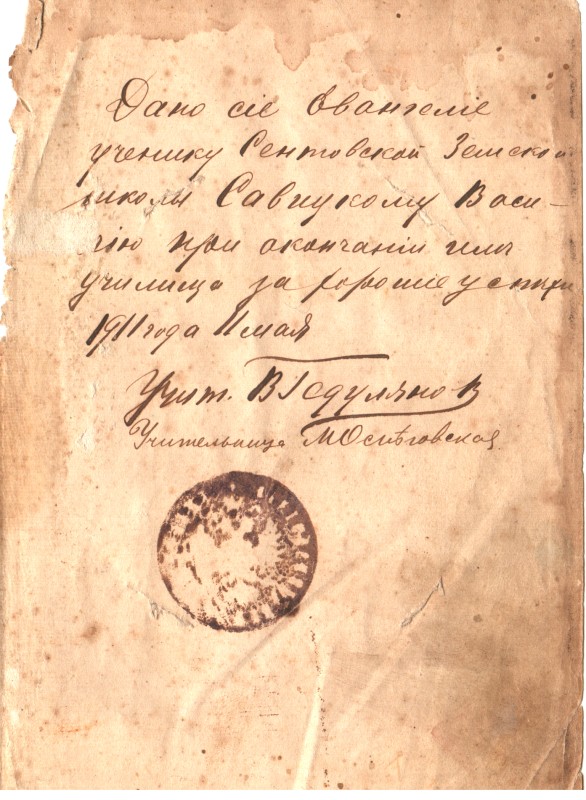 Дано сіе Евангеліе
ученику Сентовской Земской
школы Савицкому Васи-
лію при окончаніи имъ
училища за хорошіе успехи
1911 года 11 мая
Учит. В Гедуляновъ
Учительница М Оснѣговская